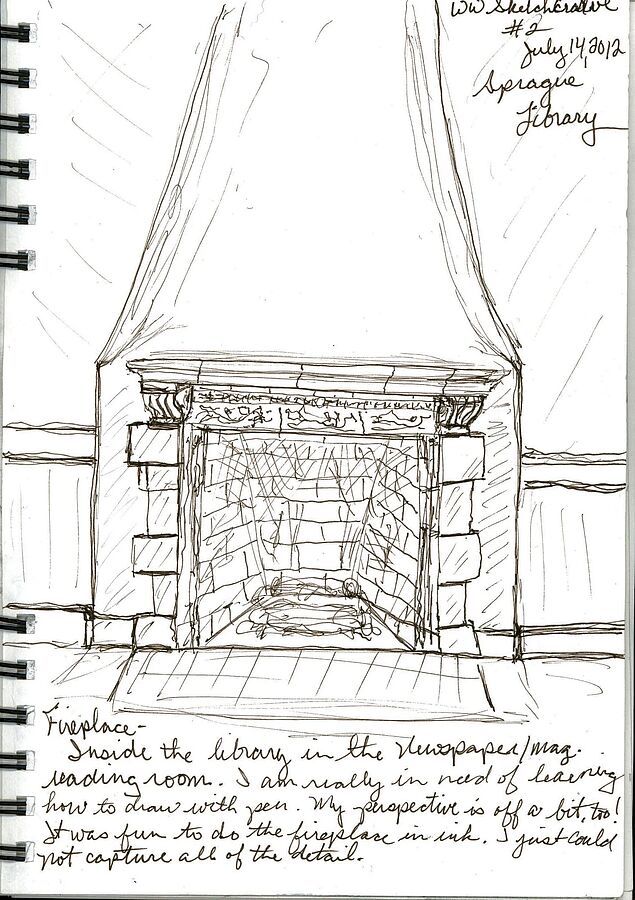 WW SketchCrawl
#2
July 14, 2012
Sprague
Library
Fireplace-
Inside the library in the Newspaper/mag.
reading room. I am really in need of learning
how to draw with pen. My perspective is off a bit, too!
It was fun to do the fireplace in ink. I just could
not capture all of the detail.